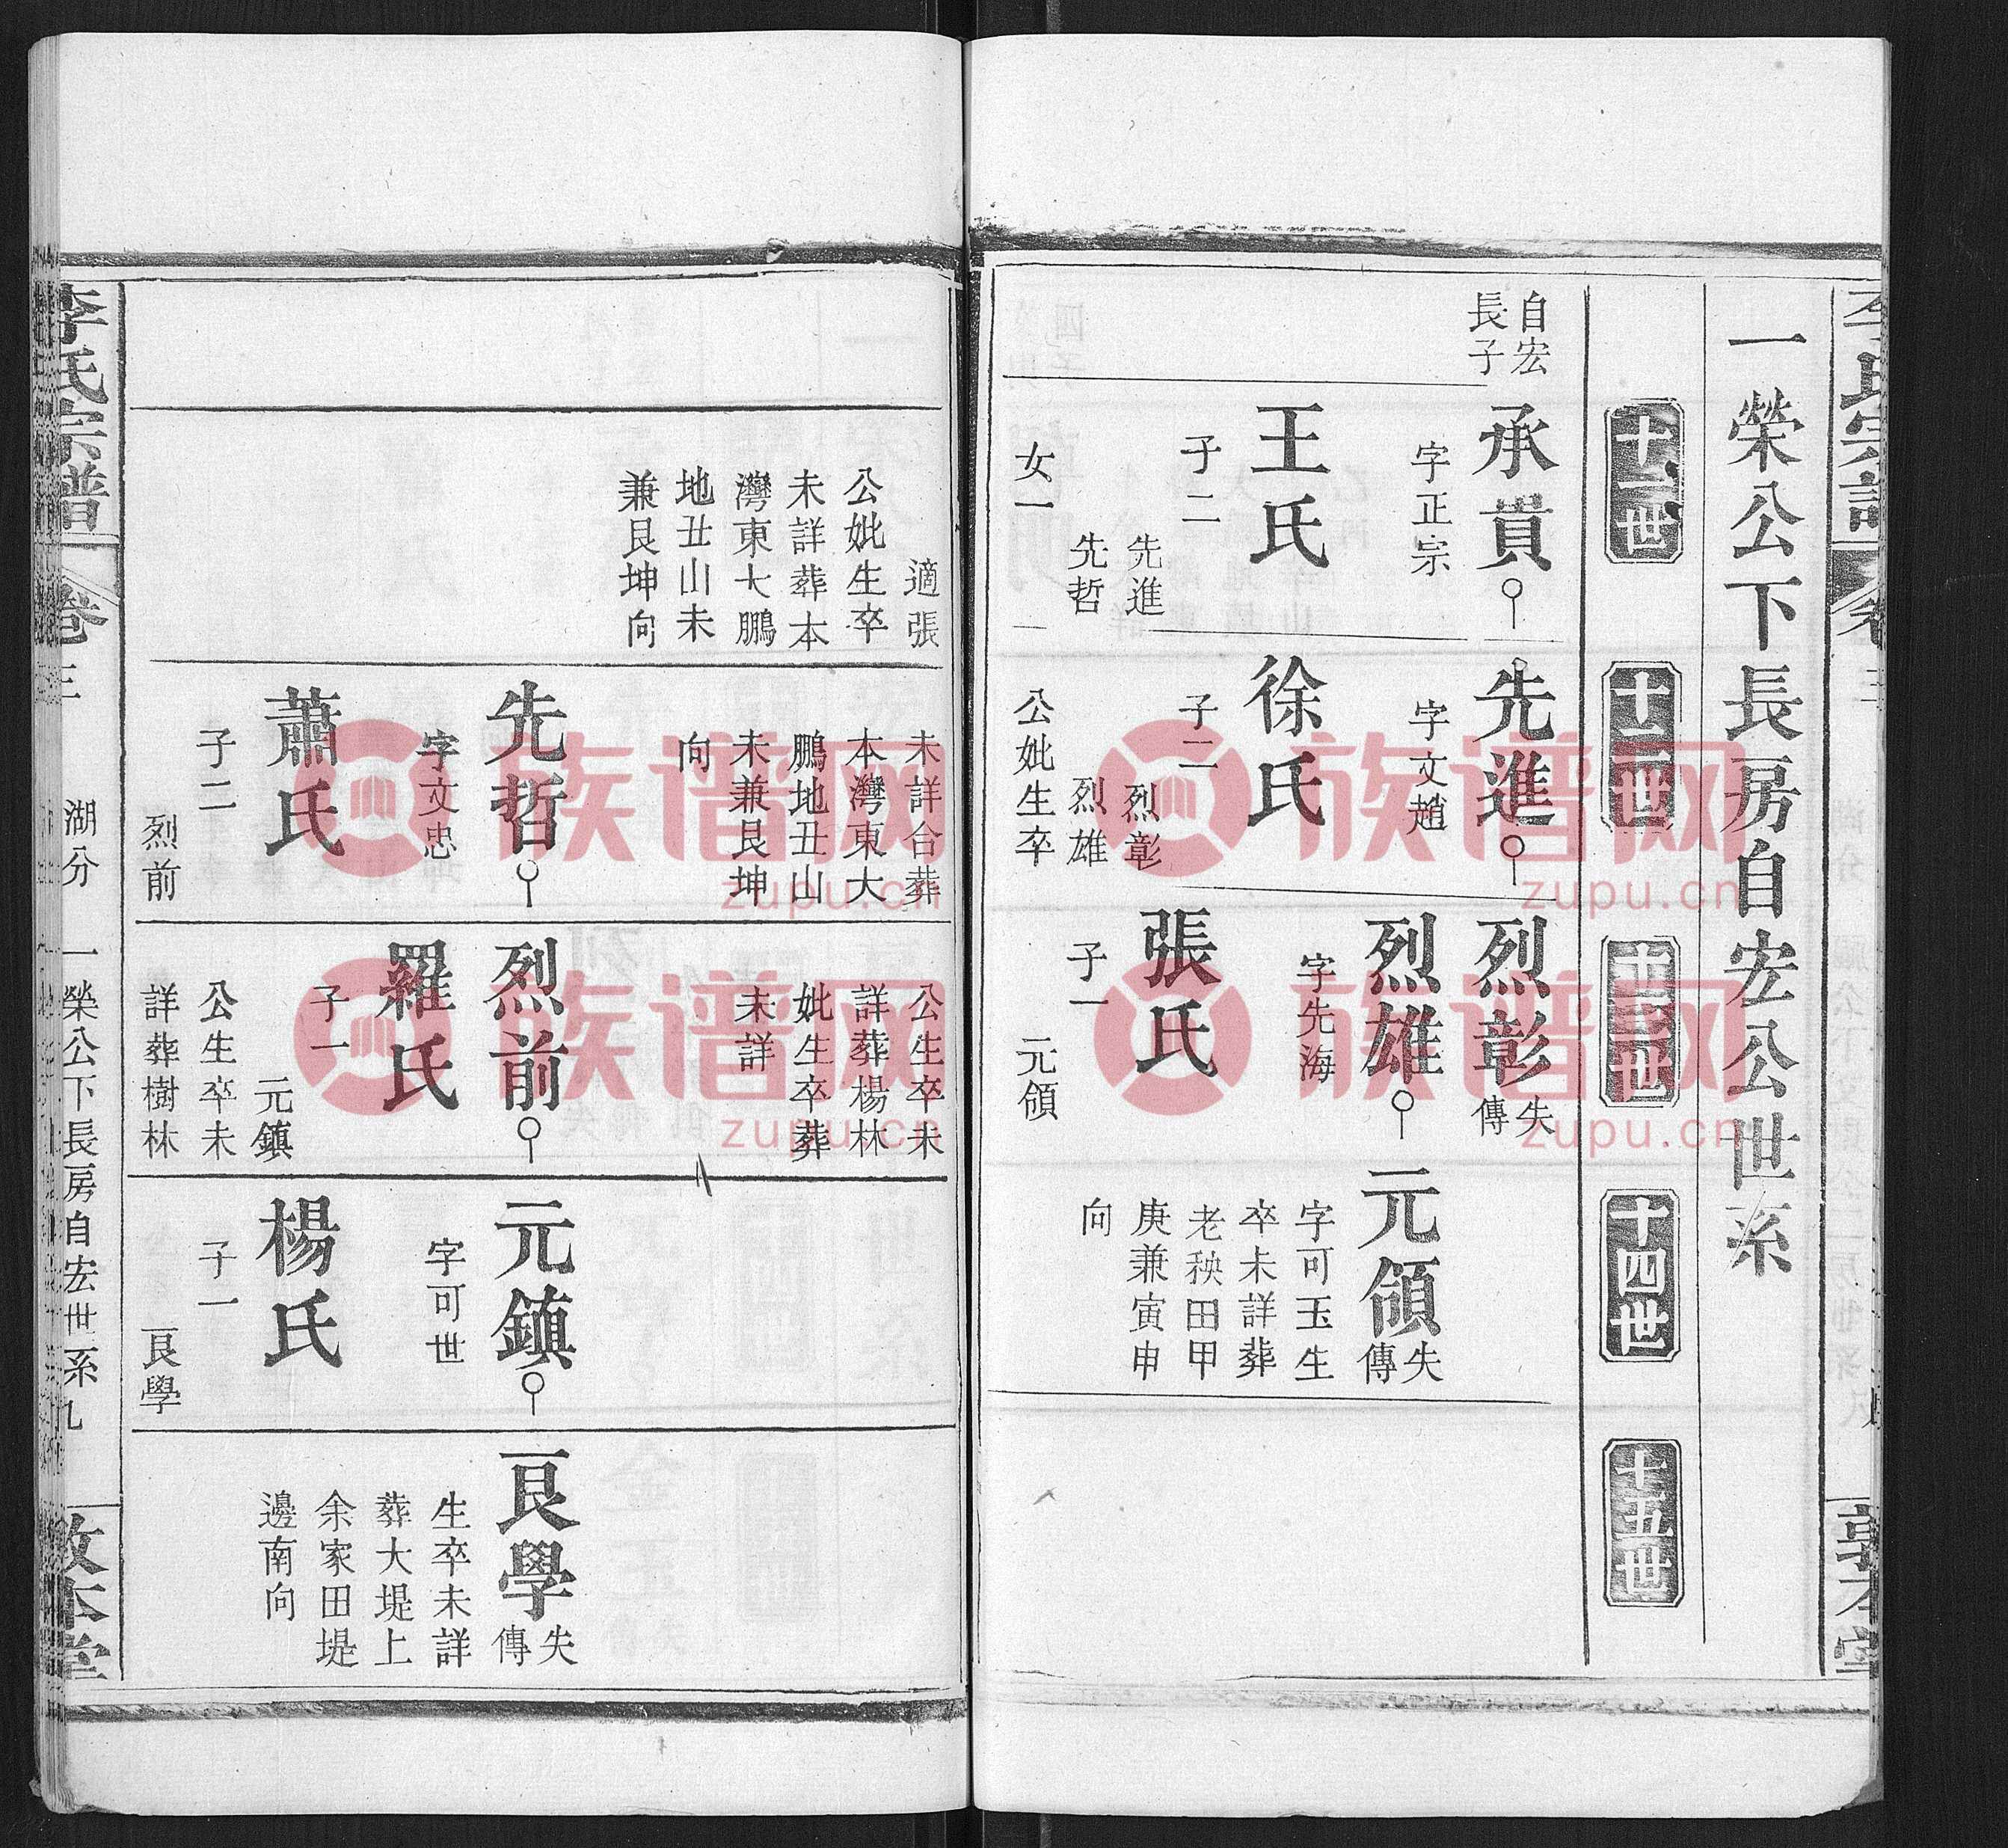 李氏宗譜
卷三
敦本堂
一榮公下長房自宏公世系
十一世
十二世
十三世
十四世
十五世
自宏
長子
承貫
字正宗
王氏
子二
先進
先哲
女一
先進
字文趙
徐氏
子二
烈彰
烈雄
公妣生卒
烈彰
失
傳
烈雄
字先海
張氏
子一
元領
元領
失
傳
字可玉生
卒未詳葬
老秧田甲
庚兼寅申
向
適張
公妣生卒
未詳葬本
灣東大鵬
地丑山未
兼艮坤向
未詳合葬
本灣東大
鵬地丑山
未兼艮坤
向
先哲
字文忠
蕭氏
子二
烈前
公生卒未
詳葬楊林
妣生卒葬
未詳
烈前
羅氏
子一
元鎮
公生卒未
詳葬樹林
元鎮
字可世
楊氏
子一
艮學
艮學
失
傳
生卒未詳
葬大堤上
余家田堤
邊南向
李氏宗譜
卷三
湖分
一榮公下長房自宏世系
九
敦本堂
族谱网
zupu.cn
族谱网
zupu.cn
族谱网
zupu.cn
族谱网
zupu.cn